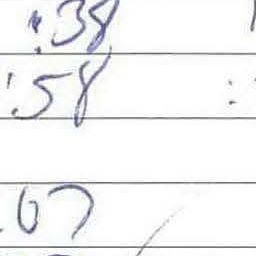 :38
:58 :
.07